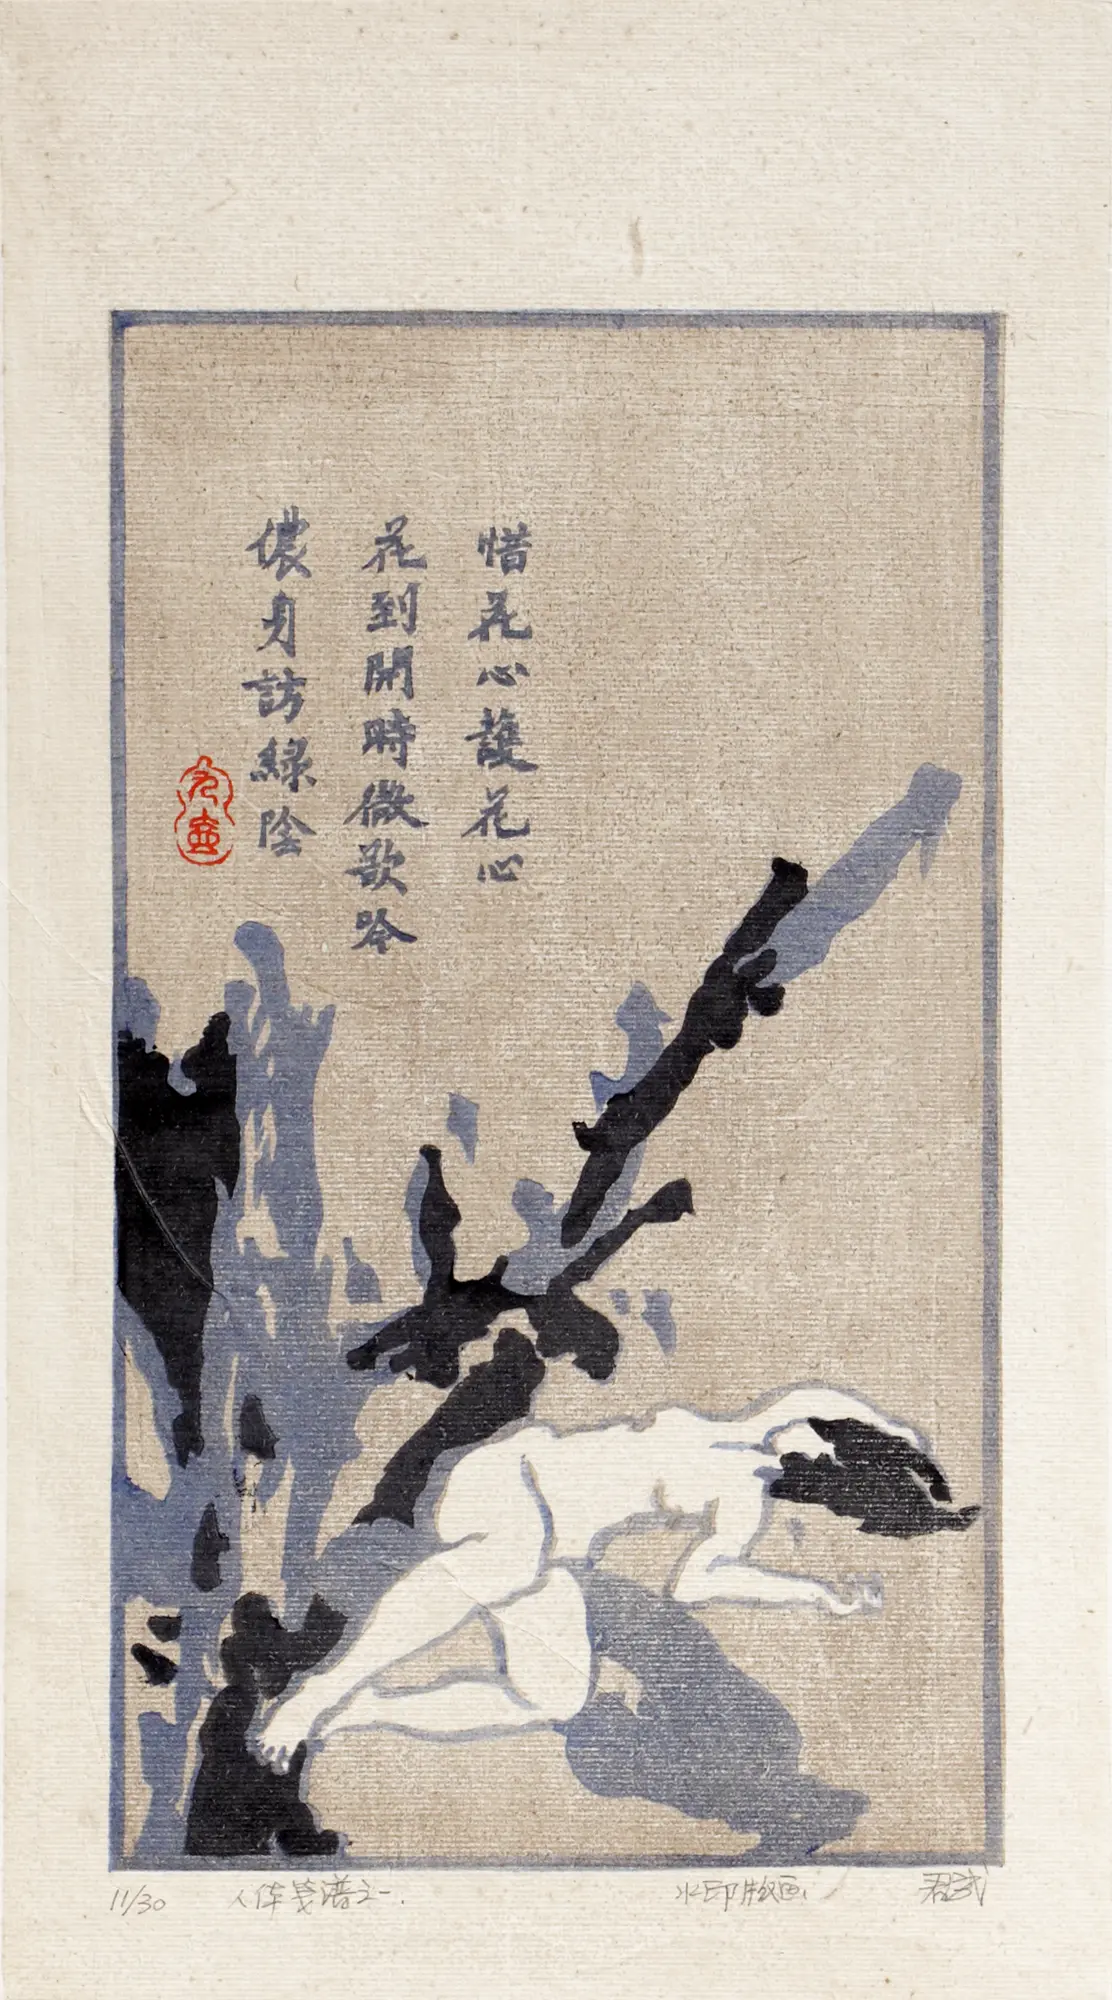 惜花心護花心
花到開時微歌吟
儂身訪綠陰
11/30 人体笺谱之一. 水印版画. 君武